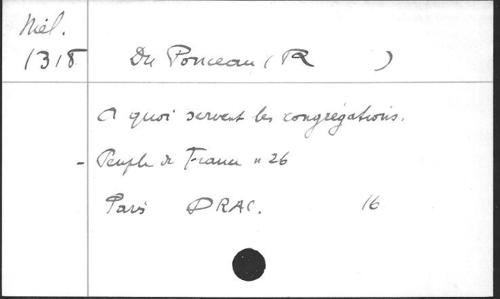 Mél.
1318
Du Ponceau (R )
A quoi servent les congrégations.
- Peuple de France n 26
Paris DRAC. 16